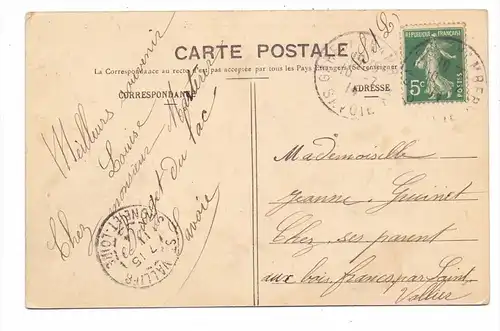 CARTE POSTALE
La Correspondance au recto n'est pas acceptée par tous les Pays Etrangers. (Se renseigner
CORRESPONDANCE
ADRESSE
(S & L)
REPUBLIQUE FRANCAISE
5c
POSTES
Meilleurs souvenir
Louise
Chez monsieur
du Lac
Savoie
ST VALLIER
SAONE-ET-LOIRE
Mademoiselle
Jeanne Guinet
Chez ses parent
aux bois francs par Saint
Vallier